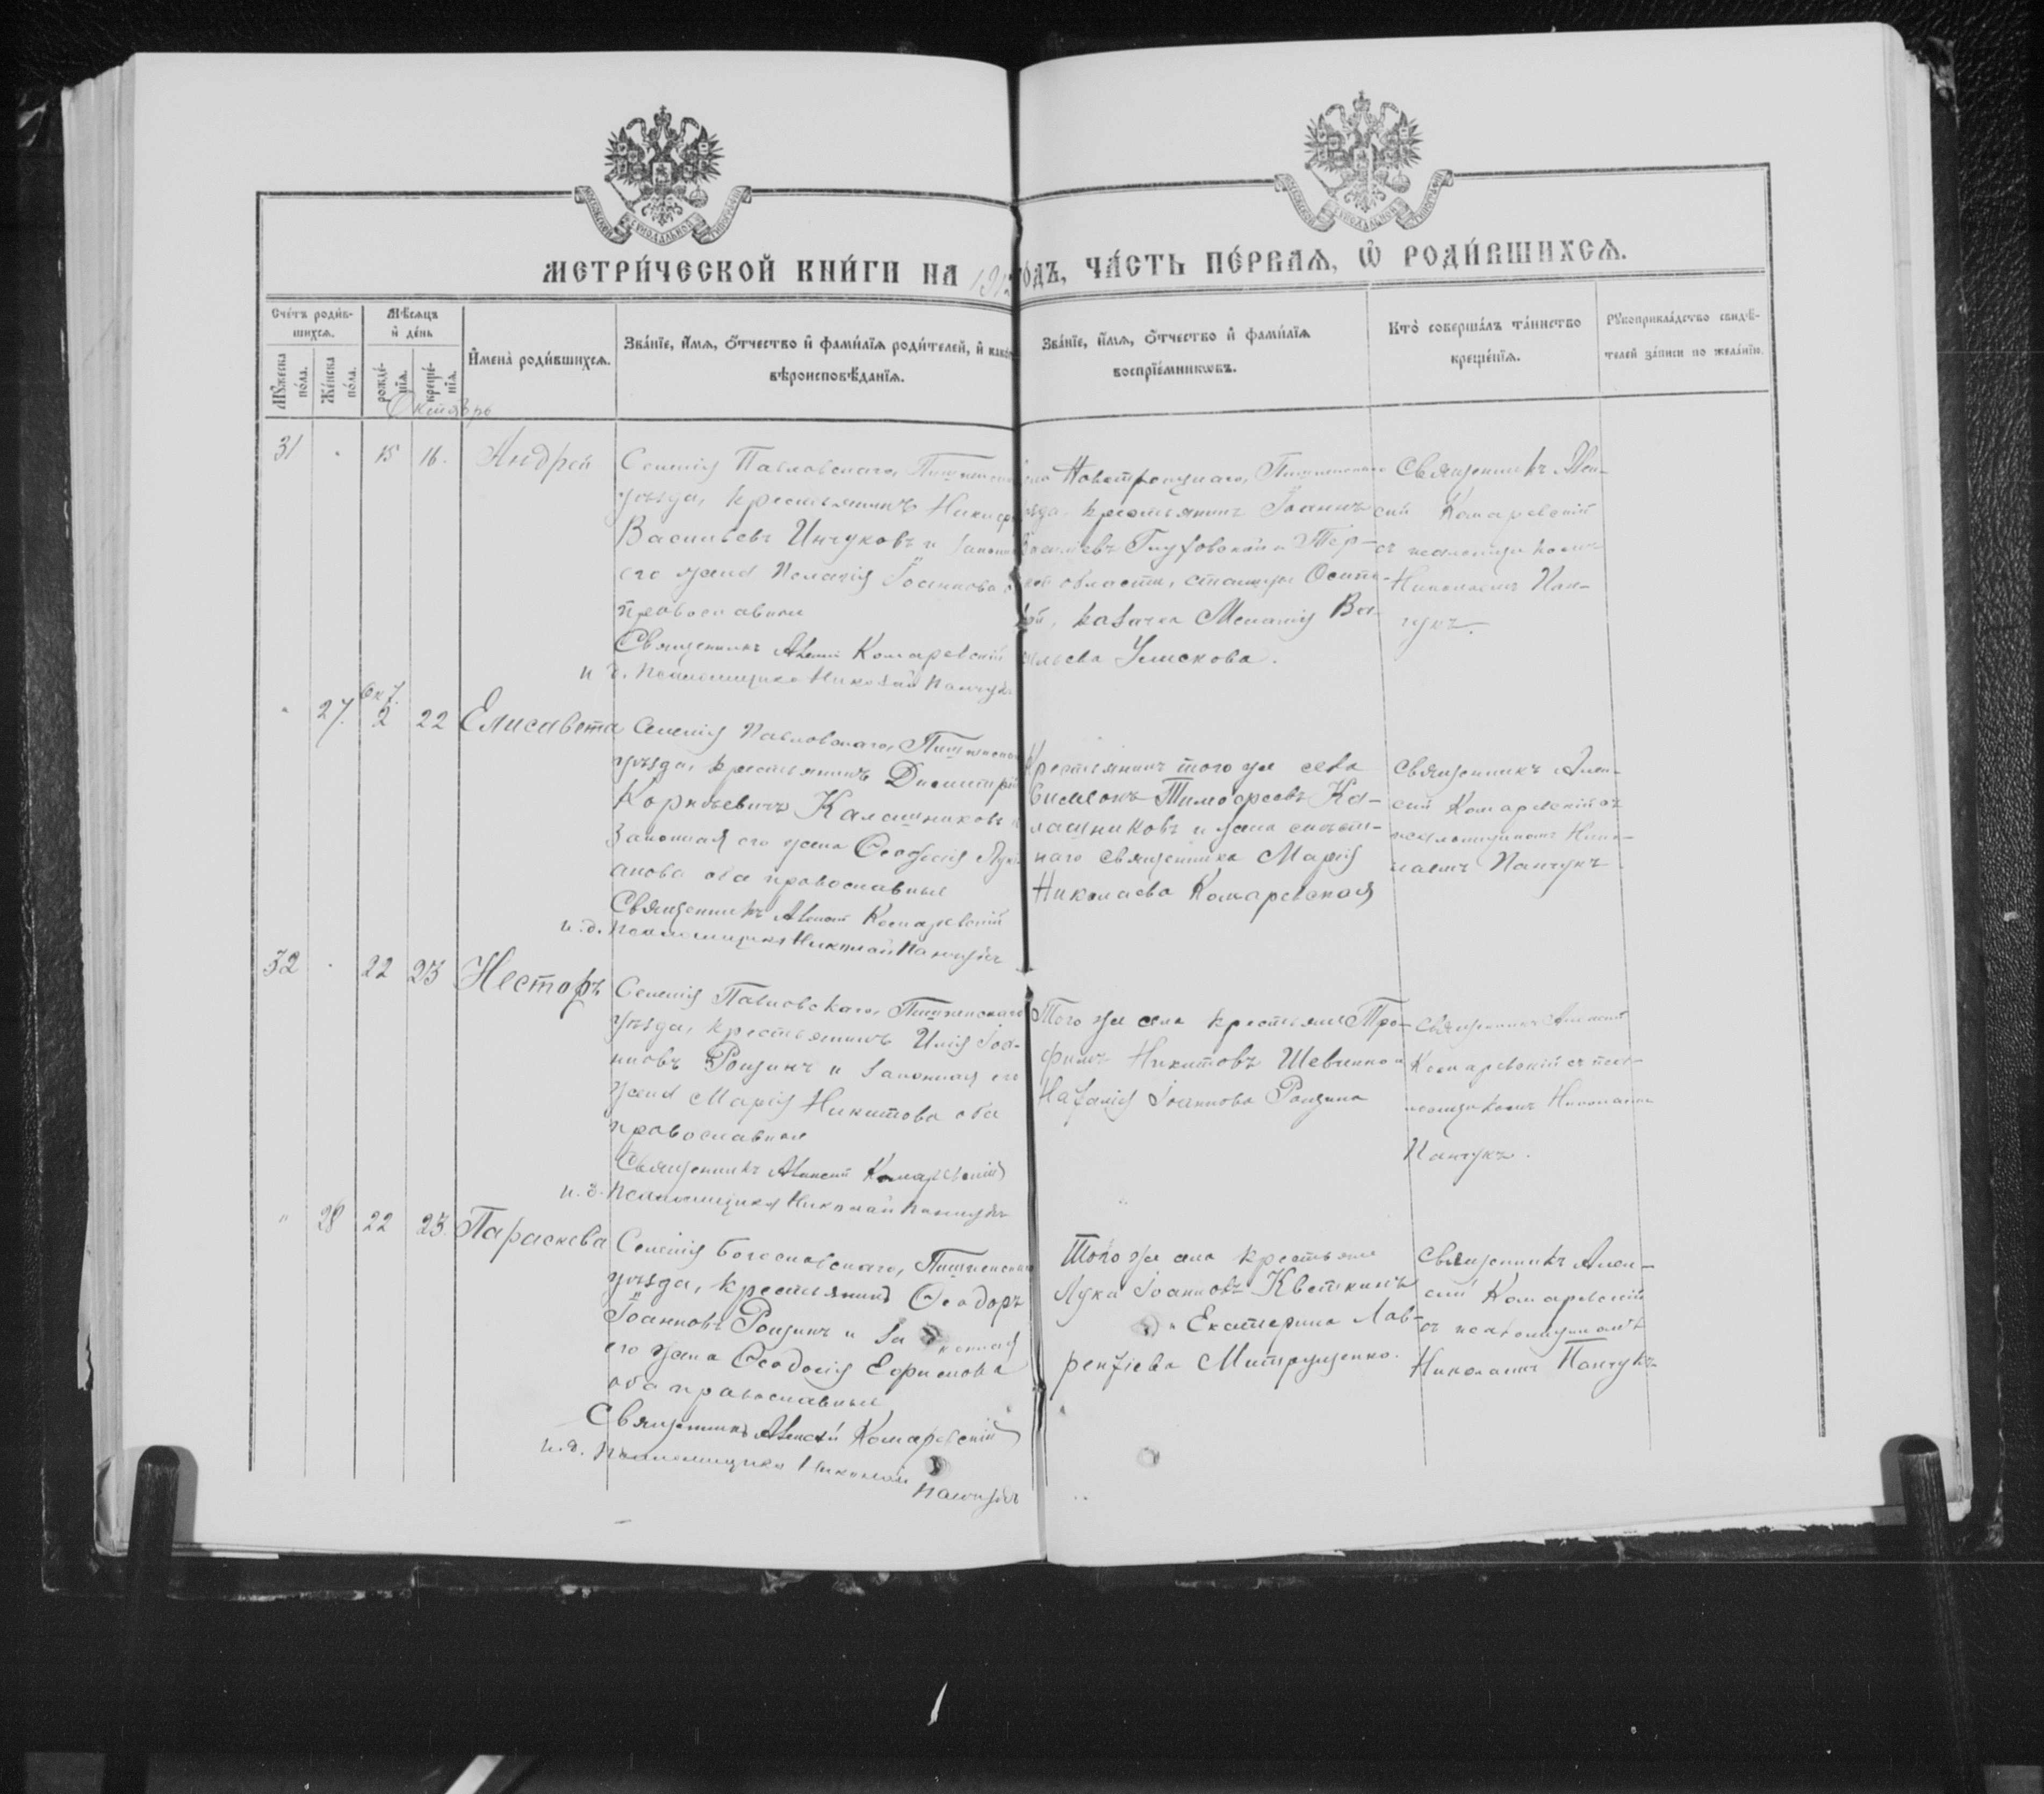 МЕТРИ́ЧЕСКОЙ КНИ́ГИ НА 1912 ГО́ДЪ, ЧА́СТЬ ПЕ́РВАѦ, Ѽ РОДИ́ВШИХСѦ.
Сче́тъ роди́в-
шихсѧ.
Мꙋ́жеска по́ла.
Же́нска по́ла.
Мѣ́сѧцъ и҆ де́нь
рожде́-
нїѧ.
креще́-
нїѧ.
И҆мена̀ роди́вшихсѧ.
Зва́нїе, и҆́мѧ, ѻ҆́тчество и҆ фами́лїѧ роди́телей, и҆ како́гѡ
вѣроисповѣ́данїѧ.
Зва́нїе, и҆́мѧ, ѻ҆́тчество и҆ фами́лїѧ
воспрїе́мникѡвъ.
Кто̀ соверша́лъ та́инство
креще́нїѧ.
Рꙋкоприкла́дство свидѣ́-
телей за́писи по жела́нїю.
Октябрь
31 15 16. Андрей
Селенія Павловскаго, Пишпекскаго
уѣзда, крестьянинъ Никифоръ
Васильевъ Инчуковъ и законная
его жена Пелагія Іоаннова
православные
Священникъ Алексій Комаревскій
и. д. Псаломщика Николай Панчукъ
Новотроицкаго, Пишпекскаго
уѣзда крестьянинъ Іоаннъ
Тер-
области, станицы
казачка Меланія Ва-
сильева
Священникъ Алек-
сій Комаревскій
съ псаломщикомъ
Николаемъ Пан-
чукъ.
27. Окт. 2 22 Елисавета
Селенія Павловскаго, Пишпекскаго
уѣзда, крестьянинъ Димитрій
Корнѣевичъ Калашниковъ и
Законная его жена Ѳеодосія Лук-
анова оба православные
Священникъ Алексій Комаревскій
и. д. Псаломщика Николай Панчукъ
Крестьянинъ того же села
Симеонъ Тимоѳеевъ Ка-
лашниковъ и жена мѣст-
наго священника Марія
Николаева Комаревская
Священникъ Алек-
сій Комаревскій съ
псаломщикомъ Нико-
лаемъ Панчукъ.
32 22 23 Несторъ
Селенія Павловскаго, Пишпекскаго
уѣзда, крестьянинъ Илія Іоа-
нновъ Рощинъ и законная его
жена Марія Никитова оба
православные
Священникъ Алексій Комаревскій
и. д. Псаломщика Николай Панчукъ
Того же села крестьяне Тро-
фимъ Никитовъ Шевченко и
Наталія Іоаннова Рощина
Священникъ Алексій
Комаревскій съ псал-
омщикомъ Николаемъ
Панчукъ.
28 22 23. Параскева
Селенія Богословскаго, Пишпекскаго
уѣзда, крестьянинъ Ѳеодоръ
Іоанновъ Рощинъ и законная
его жена Ѳеодосія Ефимова
оба православные
Священникъ Алексій Комаревскій
и. д. Псаломщика Николай
Панчукъ
Того же села крестьяне
Лука Іоанновъ Кветкинъ
и Екатерина Лав-
рентіева Митрущенко.
Священникъ Алек-
сій Комаревскій
съ псаломщикомъ
Николаемъ Панчукъ